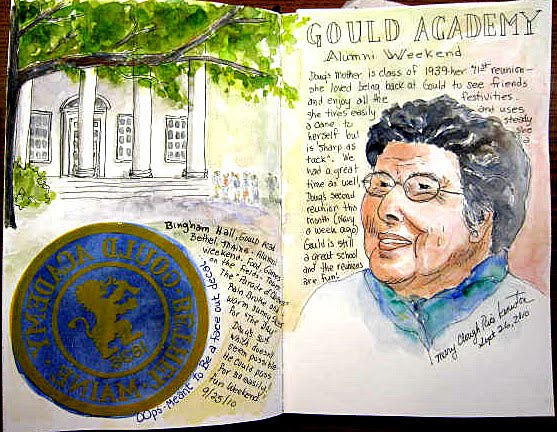 Bingham Hall, Gould Acad
Bethel, Maine, Alumni
Weekend, Food, Games
on the field, from
The Parade of
Rain Broke and
warm Sunny Skies
for the Day.
Doug's
which doesn't
seem possible
the Gould
for so easily!
Fun Weekend
9/25/10
OOps - Meant to Be a face out decal
GOULD ACADEMY
BETHEL MAINE
GOULD ACADEMY
Alumni Weekend
Doug's Mother is class of 1939-her "71st reunion-
she loved being back at Gould to see friends
and enjoy all the festivities.
she tires easily and uses
a cane to steady
herself but she
is "sharp as a
tack". We
had a great
time as well,
Doug's second
reunion this
month (Navy
a week ago)
Gould is still
a great school
and the reunions
are fun!
Mary Clough
Sept 26, 2010